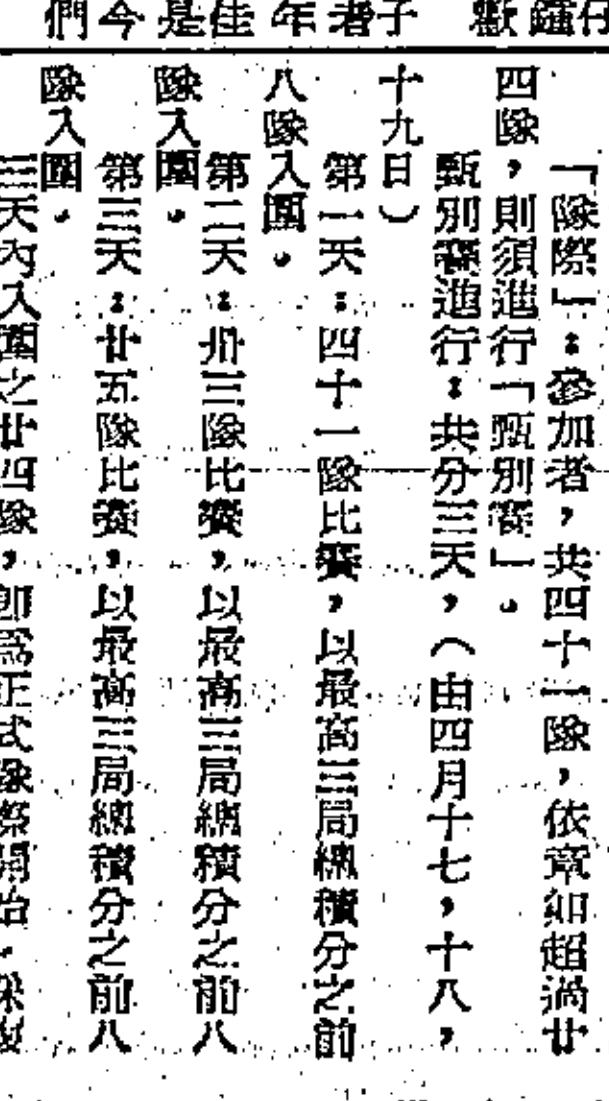 仔鑼獻　子者年佳是今們
「隊際」：參加者，共四十一隊，依章如超過廿
四隊，則須進行「甄別賽」。
甄別賽進行：共分三天，（由四月十七，十八，
十九日）
第一天：四十一隊比賽，以最高三局總積分之前
八隊入圍。
第二天：卅三隊比賽，以最高三局總積分之前八
隊入圍。
第三天：廿五隊比賽，以最高三局總積分之前八
隊入圍。
三天內入圍之廿四隊，即為正式隊際開始，採